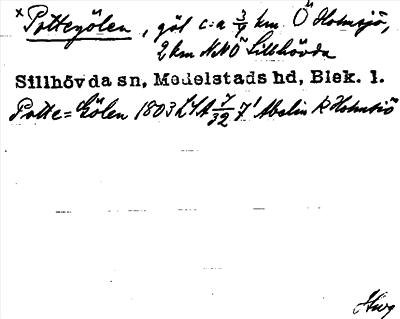 x Pottegölen, göl c:a 3/4 km Ö Holmsjö,
2 km NNÖ Sillhövda
Sillhövda sn, Medelstads hd, Blek. l.
Potte=Gölen 1803 LSA 7/32 7' Abelin R Holmsjö